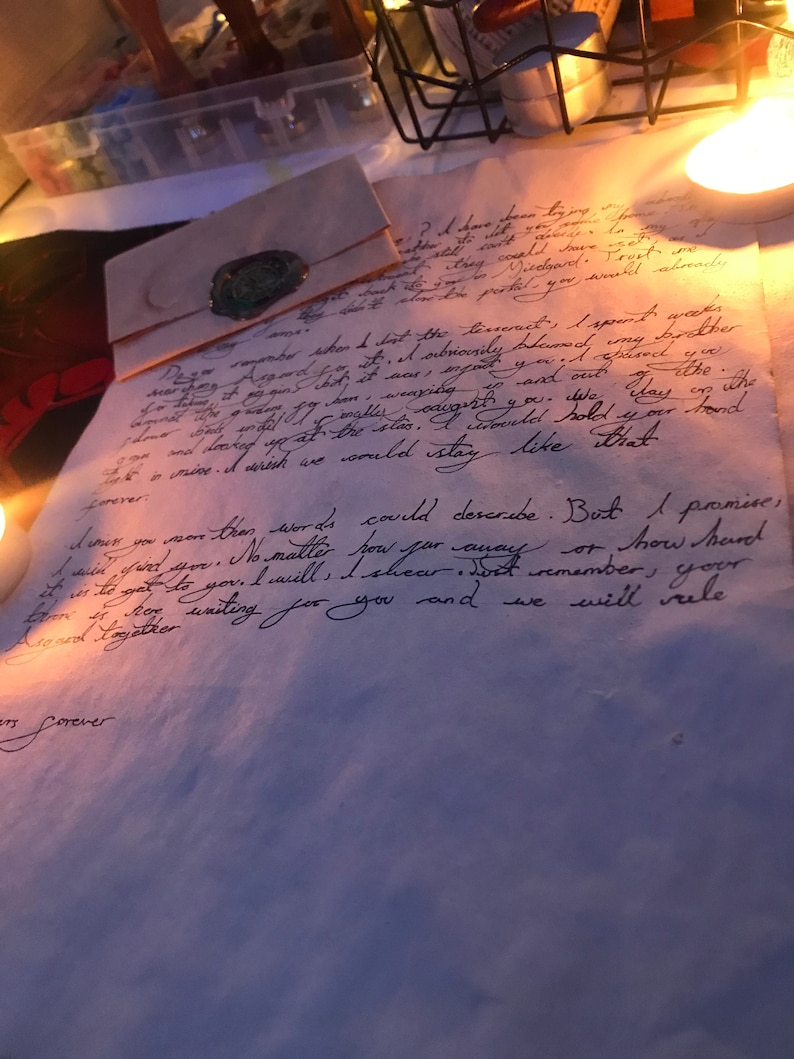 ? I have been trying my
to let you come home,
he still can't decide. In my
they could have set as I
get back to you in Midgard. Trust me
if they didn't close the portal, you would already
my arms.
Do you remember when I lost the tesseract, I spent weeks
searching Asgard for it. I obviously blamed my brother
for taking it again but, it was, infact you. I chased you
around the gardens for hours, weaving in and out of the
flower beds until, I finally caught you. We lay on the
and looked up at the stars. I would hold your hand
tight in mine. I wish we could stay like that
forever.
I miss you more then words could describe. But I promise,
I will find you. No matter how far away or how hard
it is to get to you. I will, I swear. Just remember, your
throne is here waiting for you and we will rule
Asgard together
forever